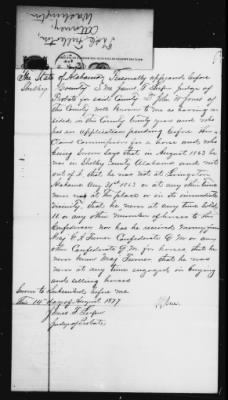 E. W. Fullerton,
Attorney,
Washington
The State of Alabama, Personally appeared before
Shelby County } me James T. Leeper Judge of
Probate for said County Dr John W Jones of
the County well known to me as having re-
sided in the County thirty years and who
has an application pending before the
Claims Commission for a horse and who
being sworn says that in August 1863 he
was in Shelby County Alabama and not
out of it that he was not at Livingston
Alabama Aug 31st 1863 or at any other time
was not at the place or in its immediate
vicinity that he never at any time sold
11 or any other number of horses to the
Confederacy nor has he received money from
Maj Turner Confederate Q M or any
other Confederate Q M for horses that he
never knew Maj Turner that he was
never at any time engaged in buying
and selling horses
Sworn to & subscribed before me
this 14th day of August 1877
James T Leeper
Judge of Probate